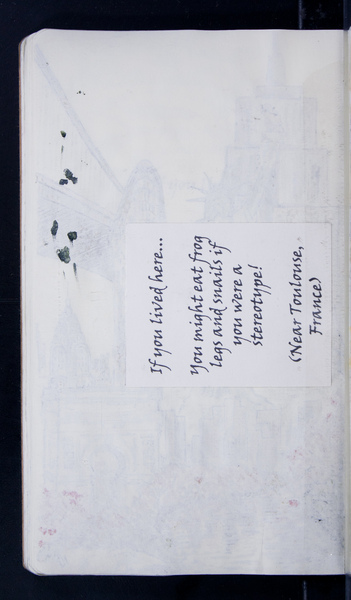 If you lived here...
You might eat frog
legs and snails if
you were a
stereotype!
(Near Toulouse,
France)